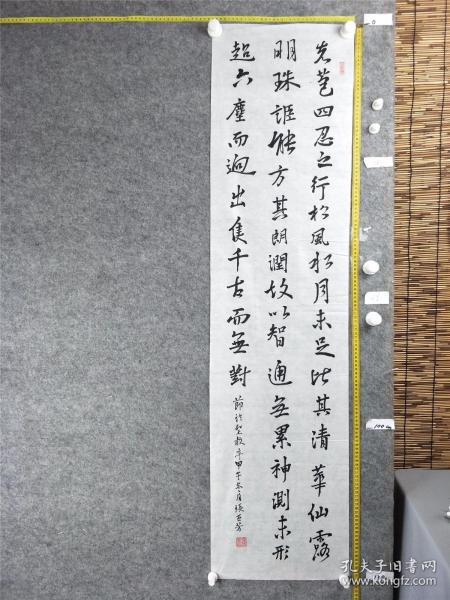 先苞四忍之行松風水月未足比其清華仙露
明珠詎能方其朗潤故以智通無累神測未形
超六塵而迥出隻千古而無對
節臨聖教序甲午冬月張
孔夫子旧书网
kongfz.com
0
100